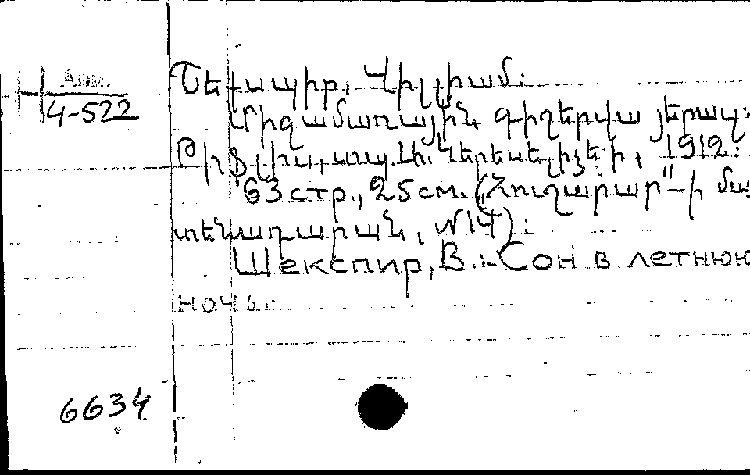 Арм.
4-522
Շեկսպիր, Վիլլիամ:
Միջամառային գիշերվա յերազ:
Թիֆլիս, տպ. Ս. Ներսեսլիչեի, 1912:
63 стр., 25 см. („Հուշարար"-ի մա
տենադարան, №14):
Шекспир, В.: Сон в летнюю
ночь.
6634